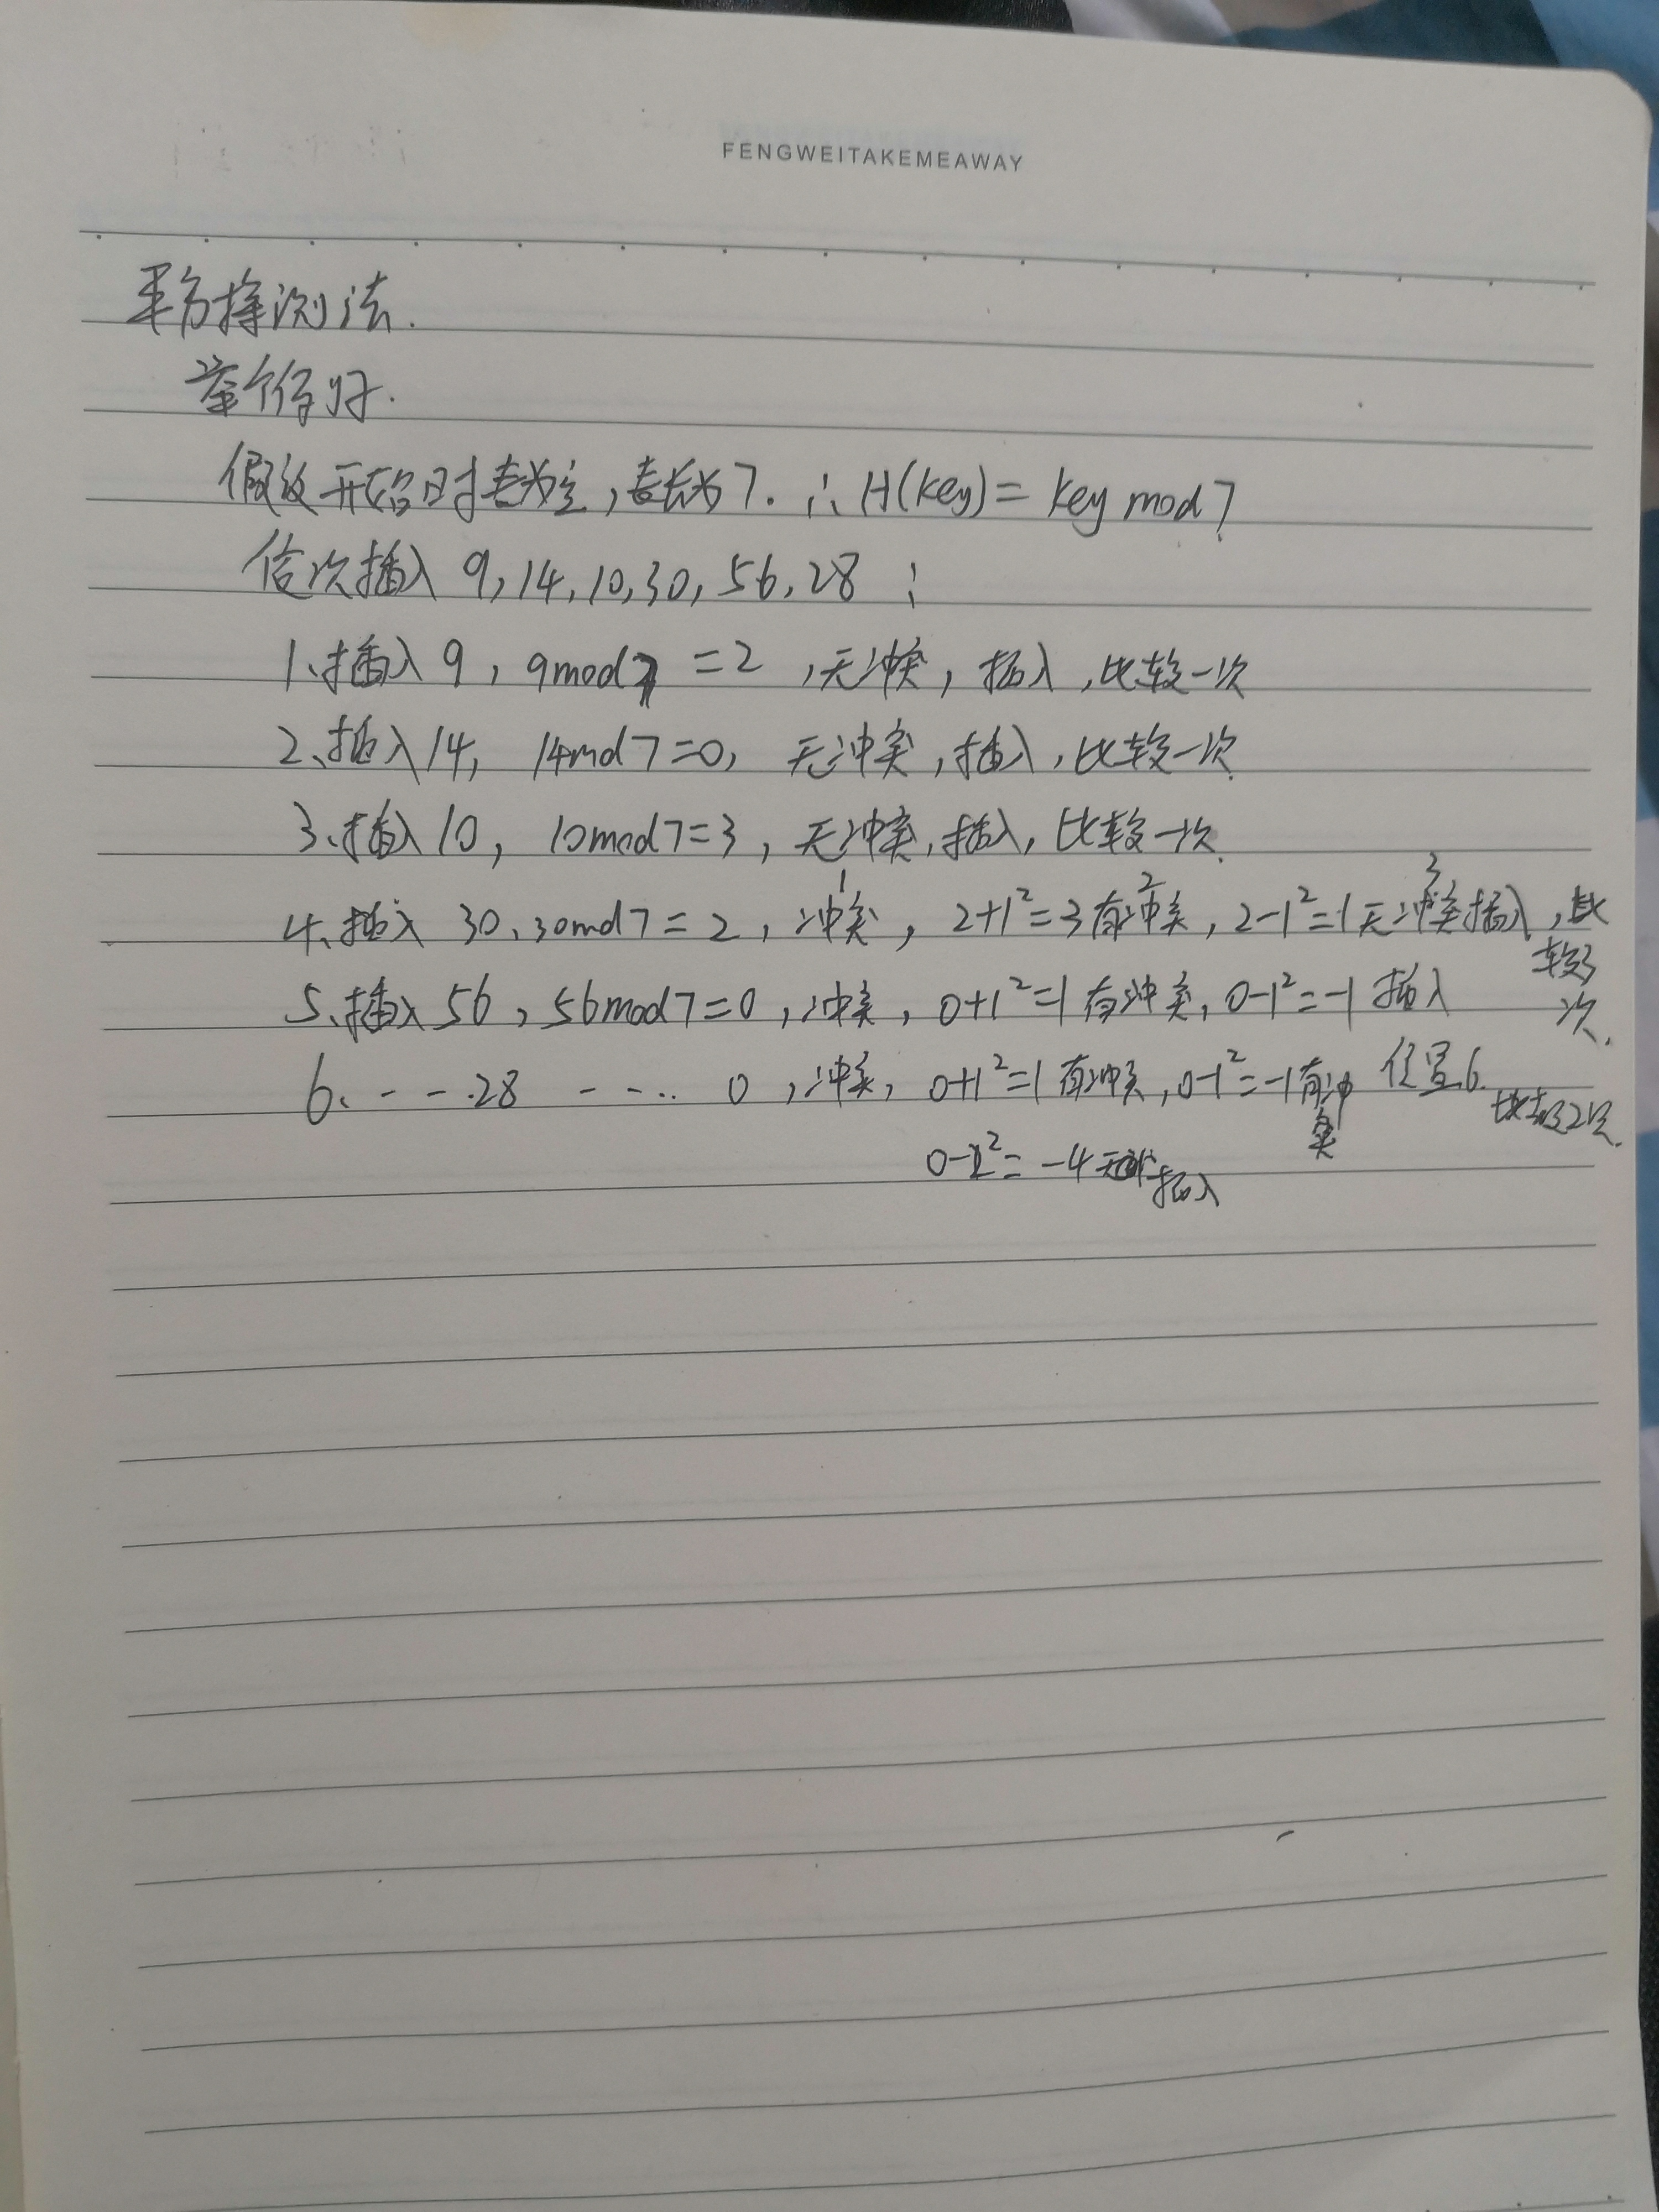 FENGWEITAKEMEAWAY
平方探测法.
举个例子.
假设开始时表为空,表长为7. ∴ H(key) = key mod 7
依次插入 9, 14, 10, 30, 56, 28 ;
1、插入9, 9mod7 = 2 ,无冲突, 插入,比较一次
2、插入14, 14mod7=0, 无冲突,插入,比较一次.
3、插入10, 10mod7=3, 无冲突,插入,比较一次.
1 2 3
4、插入 30、30mod7=2, 冲突, 2+1²=3有冲突, 2-1²=1无冲突插入,比
较3
次.
5、插入56, 56mod7=0,冲突, 0+1²=1有冲突, 0-1²=-1 插入
位置6.
6、- - - 28 - - .. 0 ,冲突, 0+1²=1有冲突,0-1²=-1有冲
突
0-2²= -4 插入